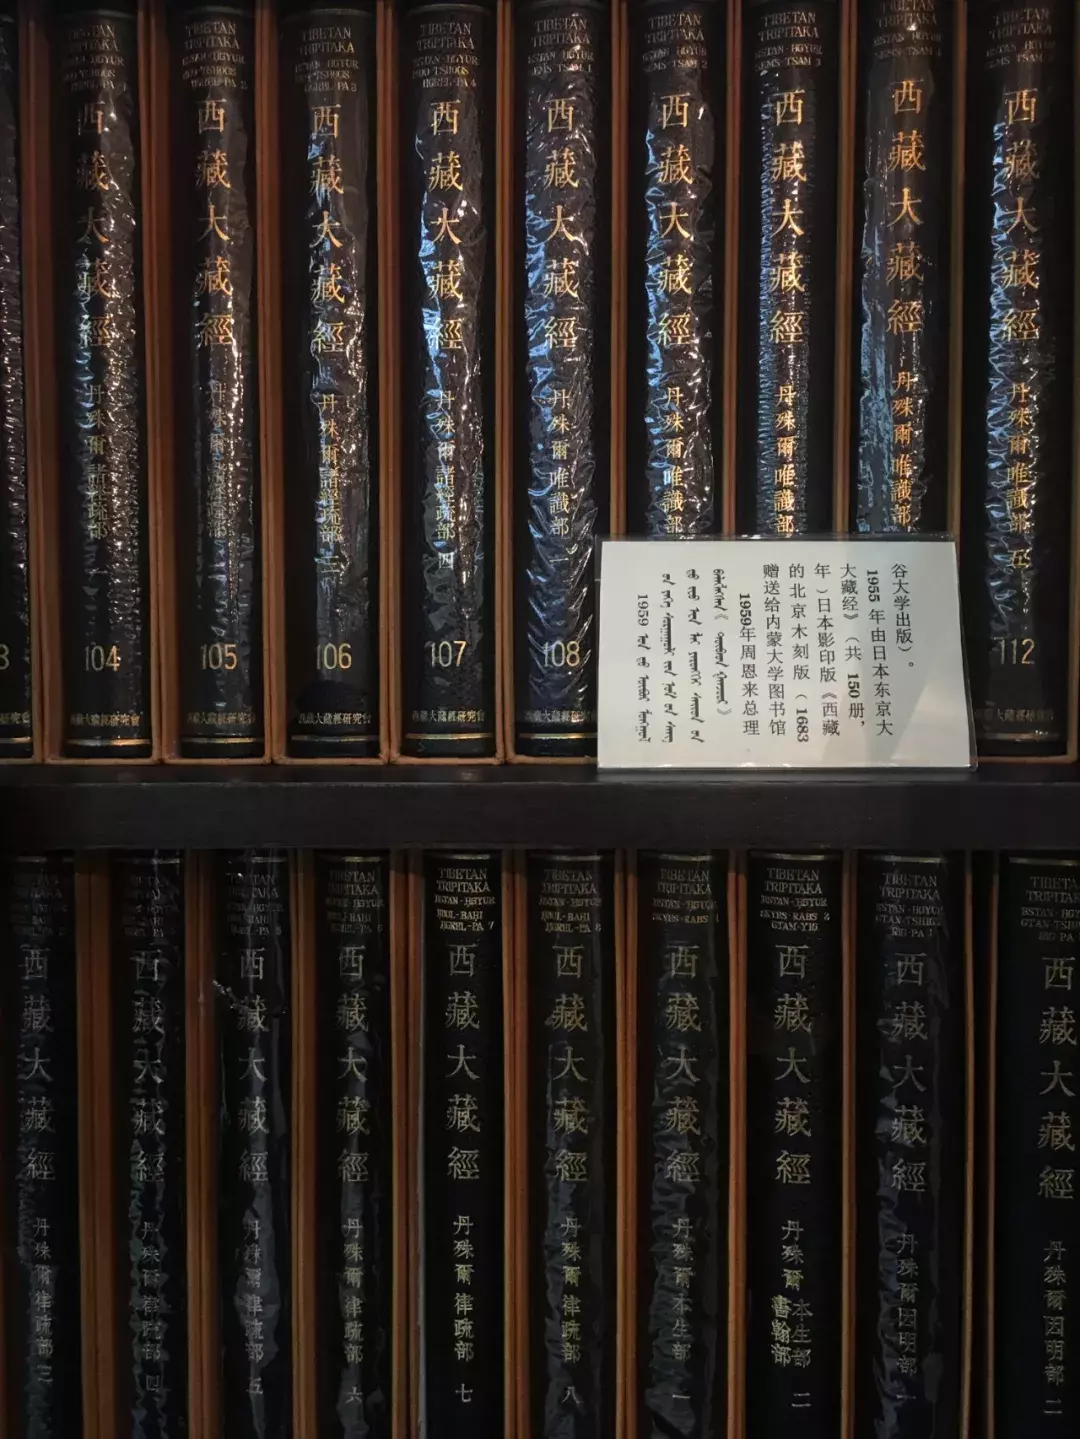 TIBETAN
TRIPITAKA
西藏大藏經
丹殊爾諸經疏部
104
西藏大藏經研究會
TIBETAN
TRIPITAKA
MDO-TSHOGS
西藏大藏經
105
TIBETAN
TRIPITAKA
BSTAN-HGYUR
西藏大藏經
丹殊爾諸經疏部三
106
西藏大藏經研究會
TIBETAN
TRIPITAKA
BSTAN-HGYUR
MDO-TSHOGS
HGREL-PA 4
西藏大藏經
丹殊爾諸經疏部四
107
西藏大藏經研究會
TIBETAN
TRIPITAKA
BSTAN-HGYUR
SEMS-TSAM 1
西藏大藏經
丹殊爾唯識部一
108
西藏大藏經研究會
TIBETAN
TRIPITAKA
BSTAN-HGYUR
SEMS-TSAM 2
西藏大藏經
丹殊爾唯識部
TIBETAN
TRIPITAKA
BSTAN-HGYUR
SEMS-TSAM 3
西藏大藏經
丹殊爾唯識部
TIBETAN
TRIPITAKA
BSTAN-HGYUR
SEMS-TSAM 4
西藏大藏經
丹殊爾唯識部
TIBETAN
TRIPITAKA
西藏大藏經
丹殊爾唯識部五
112
谷大学出版）。
1955 年由日本东京大
大藏经》（共 150 册，
年）日本影印版《西藏
的北京木刻版（1683
赠送给内蒙大学图书馆
1959年周恩来总理
1959
西藏大藏經
丹殊爾律疏部三
TIBETAN
TRIPITAKA
西藏大藏經
丹殊爾律疏部四
TIBETAN
TRIPITAKA
西藏大藏經
丹殊爾律疏部五
TIBETAN
TRIPITAKA
西藏大藏經
丹殊爾律疏部六
TIBETAN
TRIPITAKA
BSTAN-HGYUR
HDUL-BAHI
HGREL-PA 7
西藏大藏經
丹殊爾律疏部七
TIBETAN
TRIPITAKA
BSTAN-HGYUR
HDUL-BAHI
HGREL-PA 8
西藏大藏經
丹殊爾律疏部八
TIBETAN
TRIPITAKA
BSTAN-HGYUR
SKYES-RABS 1
西藏大藏經
丹殊爾本生部一
TIBETAN
TRIPITAKA
BSTAN-HGYUR
SKYES-RABS 2
GTAM-YIG
西藏大藏經
丹殊爾本生部書翰部二
TIBETAN
TRIPITAKA
BSTAN-HGYUR
GTAN-TSHIG
RIG-PA 1
西藏大藏經
丹殊爾因明部一
TIBETAN
TRIPITAKA
BSTAN-HGYUR
GTAN-TSHIG
RIG-PA
西藏大藏經
丹殊爾因明部二